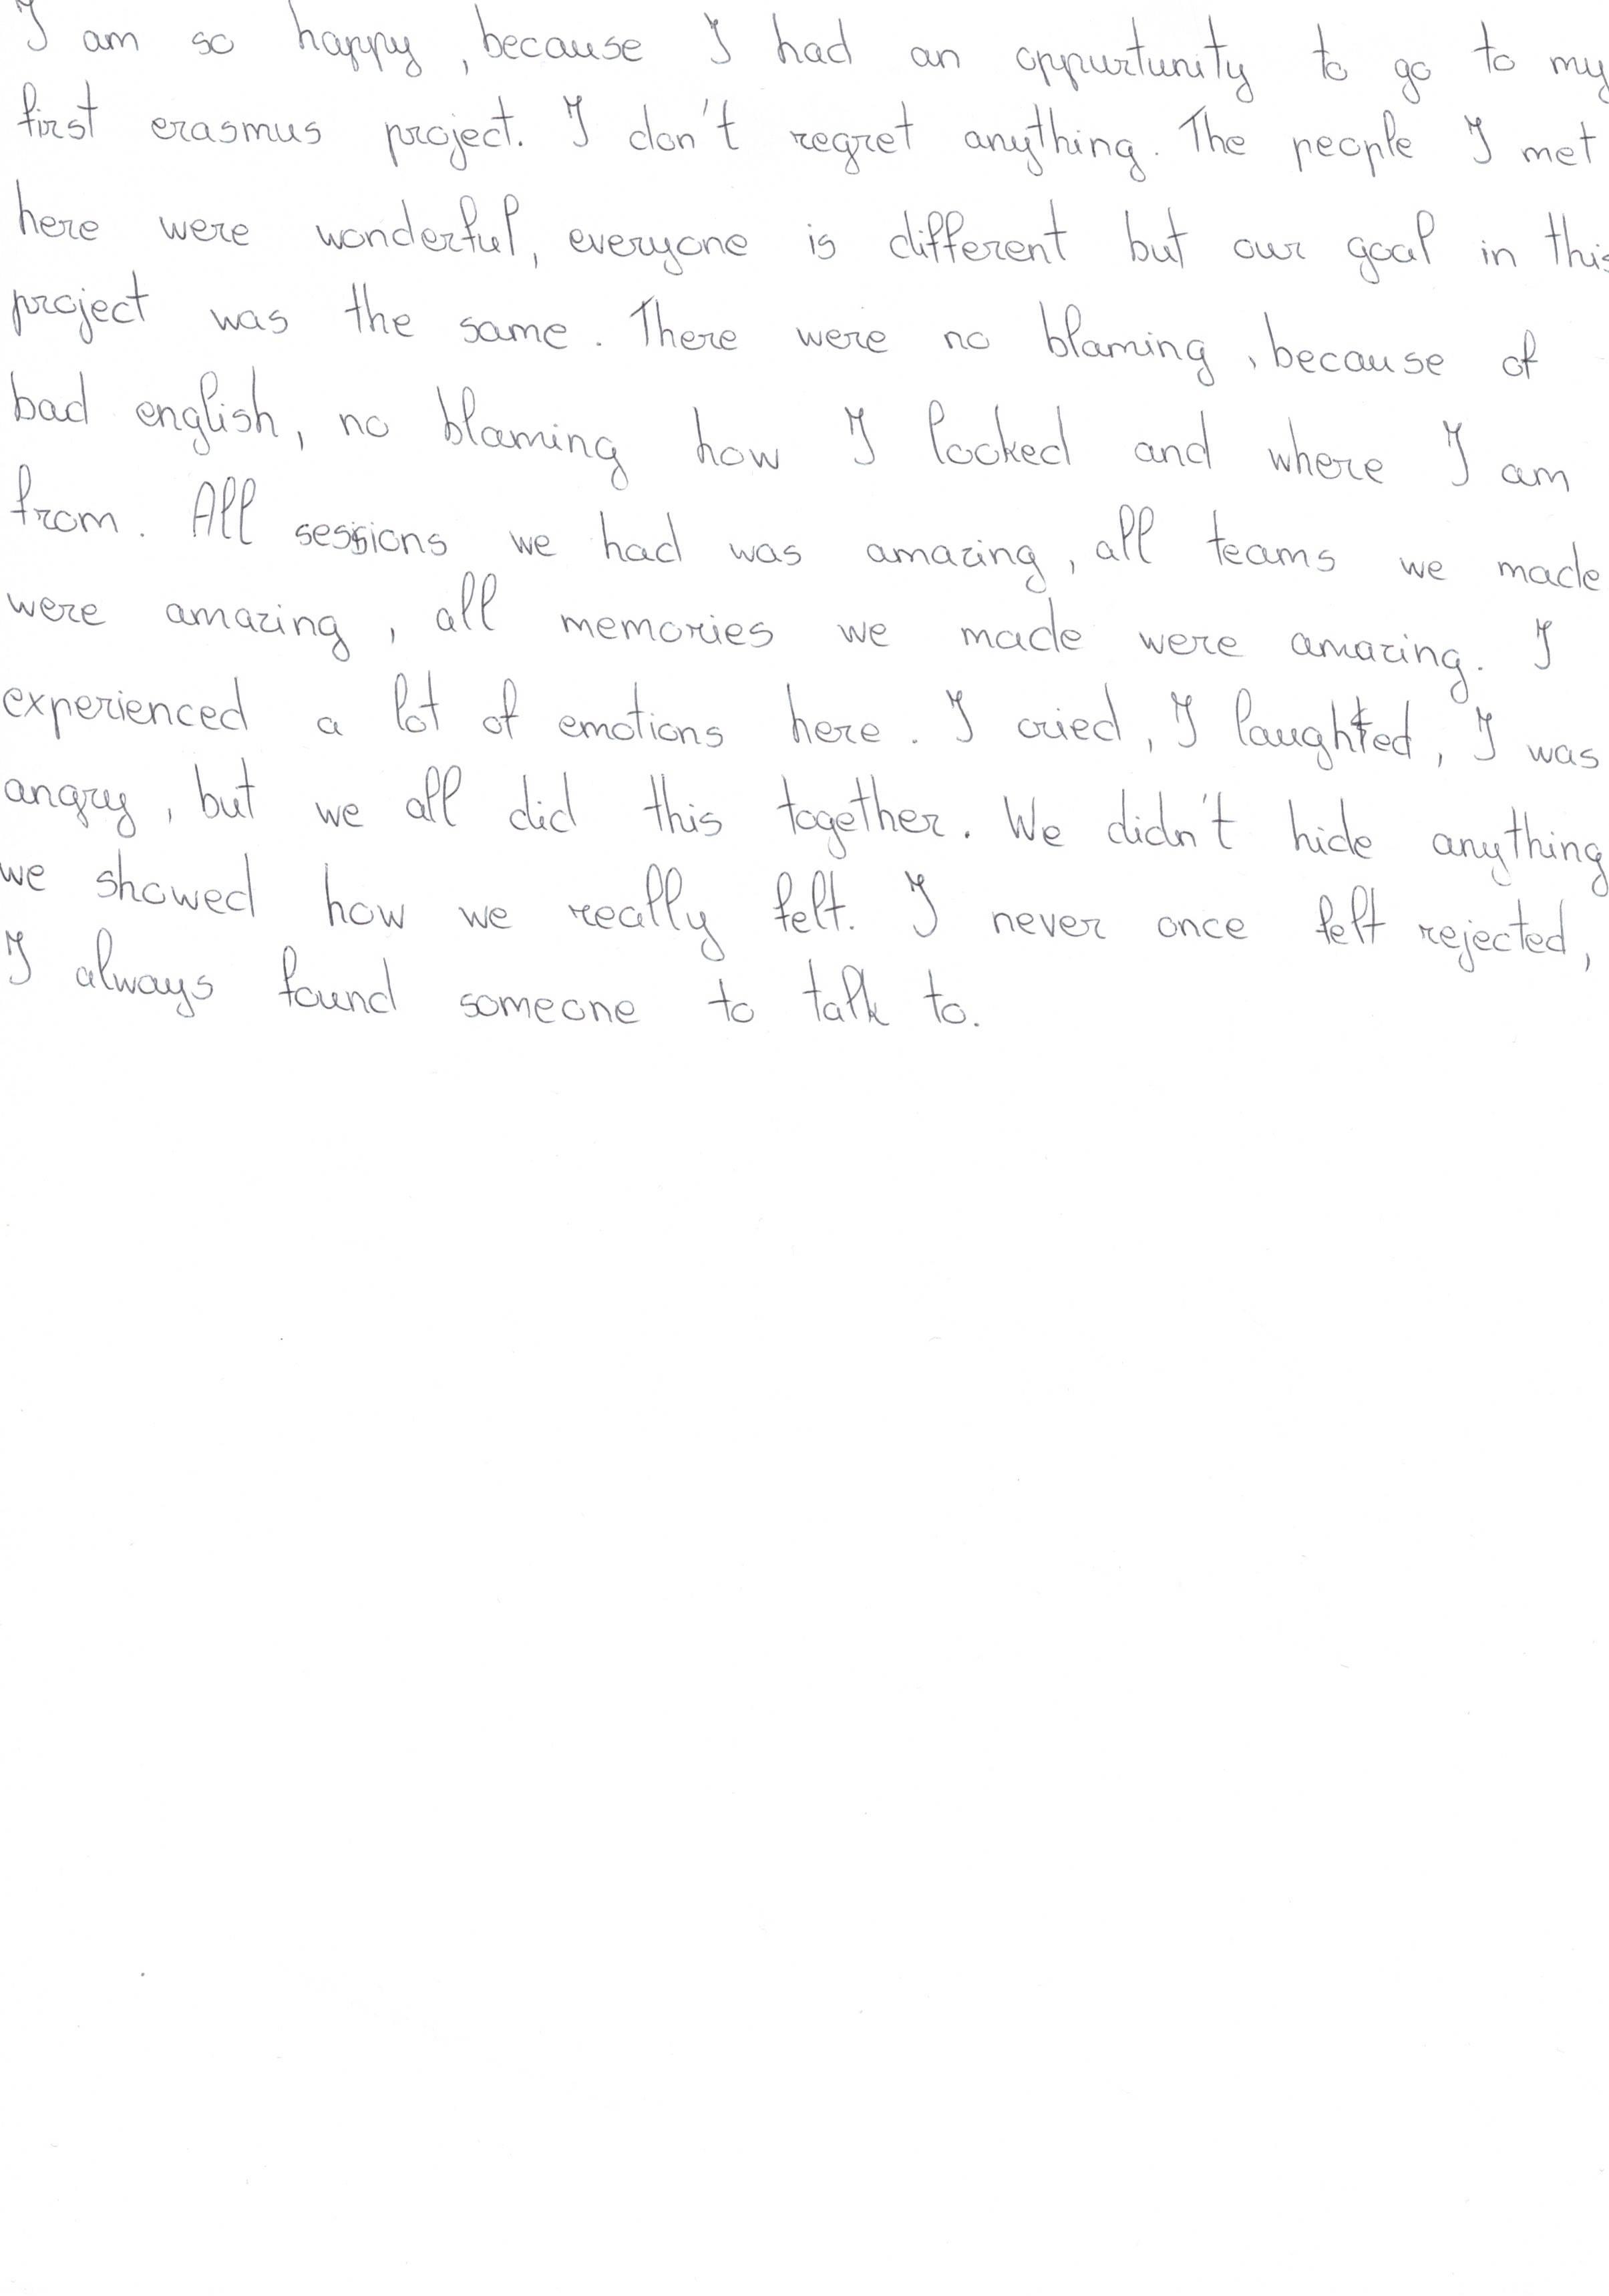 I am so happy, because I had an oppurtunity to go to my
first erasmus project. I don't regret anything. The people I met
here were wonderful, everyone is different but our goal in this
project was the same. There were no blaming, because of
bad english, no blaming how I looked and where I am
from. All sessions we had was amazing, all teams we made
were amazing, all memories we made were amazing. I
experienced a lot of emotions here. I cried, I laughted, I was
angry, but we all did this together. We didn't hide anything
we showed how we really felt. I never once felt rejected,
I always found someone to talk to.